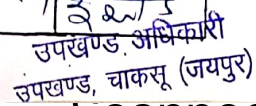 उपखण्ड अधिकारी
उपखण्ड, चाकसू (जयपुर)